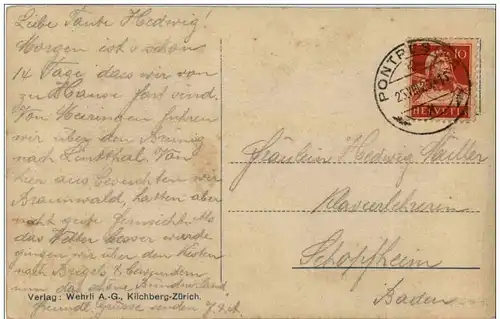 Liebe Tante Hedwig!
Morgen ist's schon
14 Tage, dass wir von
zu Hause fort sind.
Von Meiringen fuhren
wir über den Brünig
nach Linthal. Von
hier aus besuchten wir
Braunwald, hatten aber
nicht gute Fernsicht. Als
das Wetter besser wurde
gingen wir über den Kisten
nach Brigels &
nun das schöne Bündnerland
Freundl. Grüsse senden
Verlag: Wehrli A.-G., Kilchberg-Zürich.
PONTRES
10
HELVETIA
Fräulein Hedwig Müller
Klavierlehrerin
Schopfheim
Baden